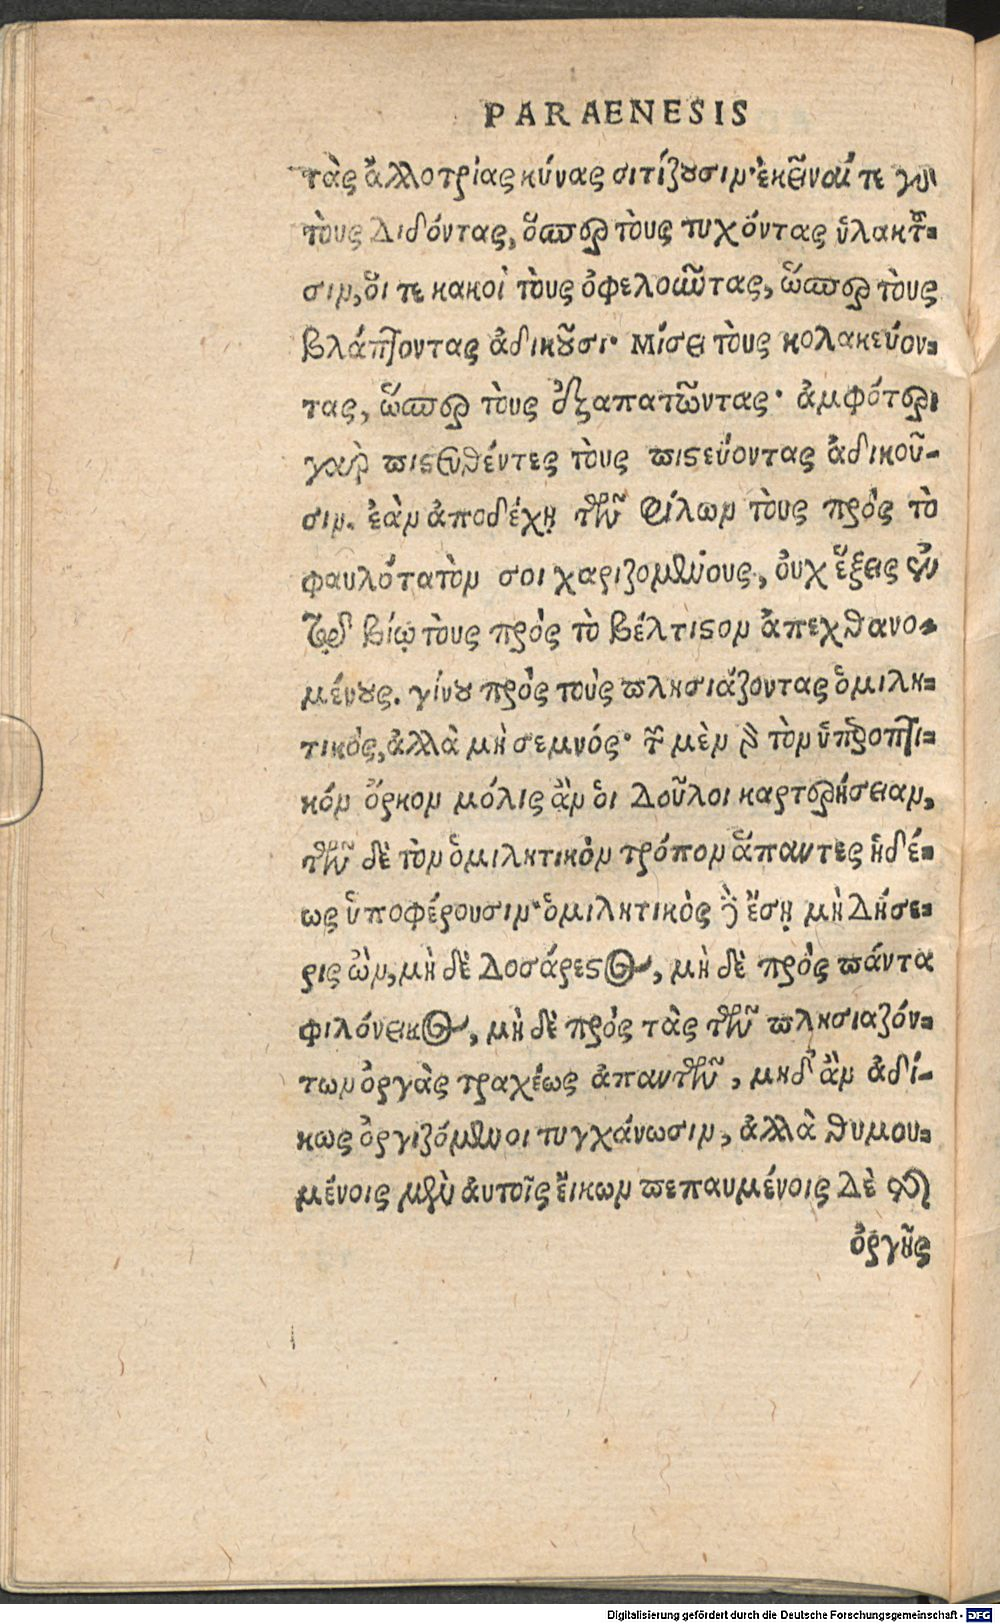 PARAENESIS
τὰς ἀλλοτρίας κύνας σιτίζουσιν· ἐκεῖναί τε γὰρ
τοὺς διδόντας, ὥσπερ τοὺς τυχόντας ὑλακτοῦ=
σιν, ὅι τε κακοὶ τοὺς ὀφελοῦντας, ὥσπερ τοὺς
βλάπτοντας ἀδικοῦσι· Μίσει τοὺς κολακεύον=
τας, ὥσπερ τοὺς ἐξαπατῶντας· ἀμφότεροι
γὰρ πιστευθέντες τοὺς πιστεύοντας ἀδικοῦ-
σιν. ἐὰν ἀποδέχῃ τῶν φίλων τοὺς πρὸς τὸ
φαυλότατόν σοι χαριζομένους, ὀυχ ἕξεις ἐν
τῷ βίῳ τοὺς πρὸς τὸ βέλτιστον ἀπεχθανο=
μένους. γίνου πρὸς τοὺς πλησιάζοντας ὁμιλη=
τικὸς, ἀλλὰ μὴ σεμνός· τῶν μὲν γὰρ τὸν ὑπεροπτι=
κὸν ὄγκον μόλις ἂν ὁι δοῦλοι καρτερήσειαν,
τῶν δὲ τὸν ὁμιλητικὸν τρόπον ἅπαντες ἡδέ=
ως ὑποφέρουσιν· ὁμιλητικὸς δὲ ἔσῃ μὴ δήσε=
ρις ὢν, μὴ δὲ δυσάρεστος, μὴ δὲ πρὸς πάντα
φιλόνεικος, μὴ δὲ πρὸς τὰς τῶν πλησιαζόν=
των ὀργὰς τραχέως ἀπαντῶν, μηδ' ἂν ἀδί-
κως ὀργιζόμενοι τυγχάνωσιν, ἀλλὰ θυμου=
μένοις μὲν ἀυτοῖς ἔικων πεπαυμένοις δὲ τῆς
ὀργῆς
Digitalisierung gefördert durch die Deutsche Forschungsgemeinschaft - DFG